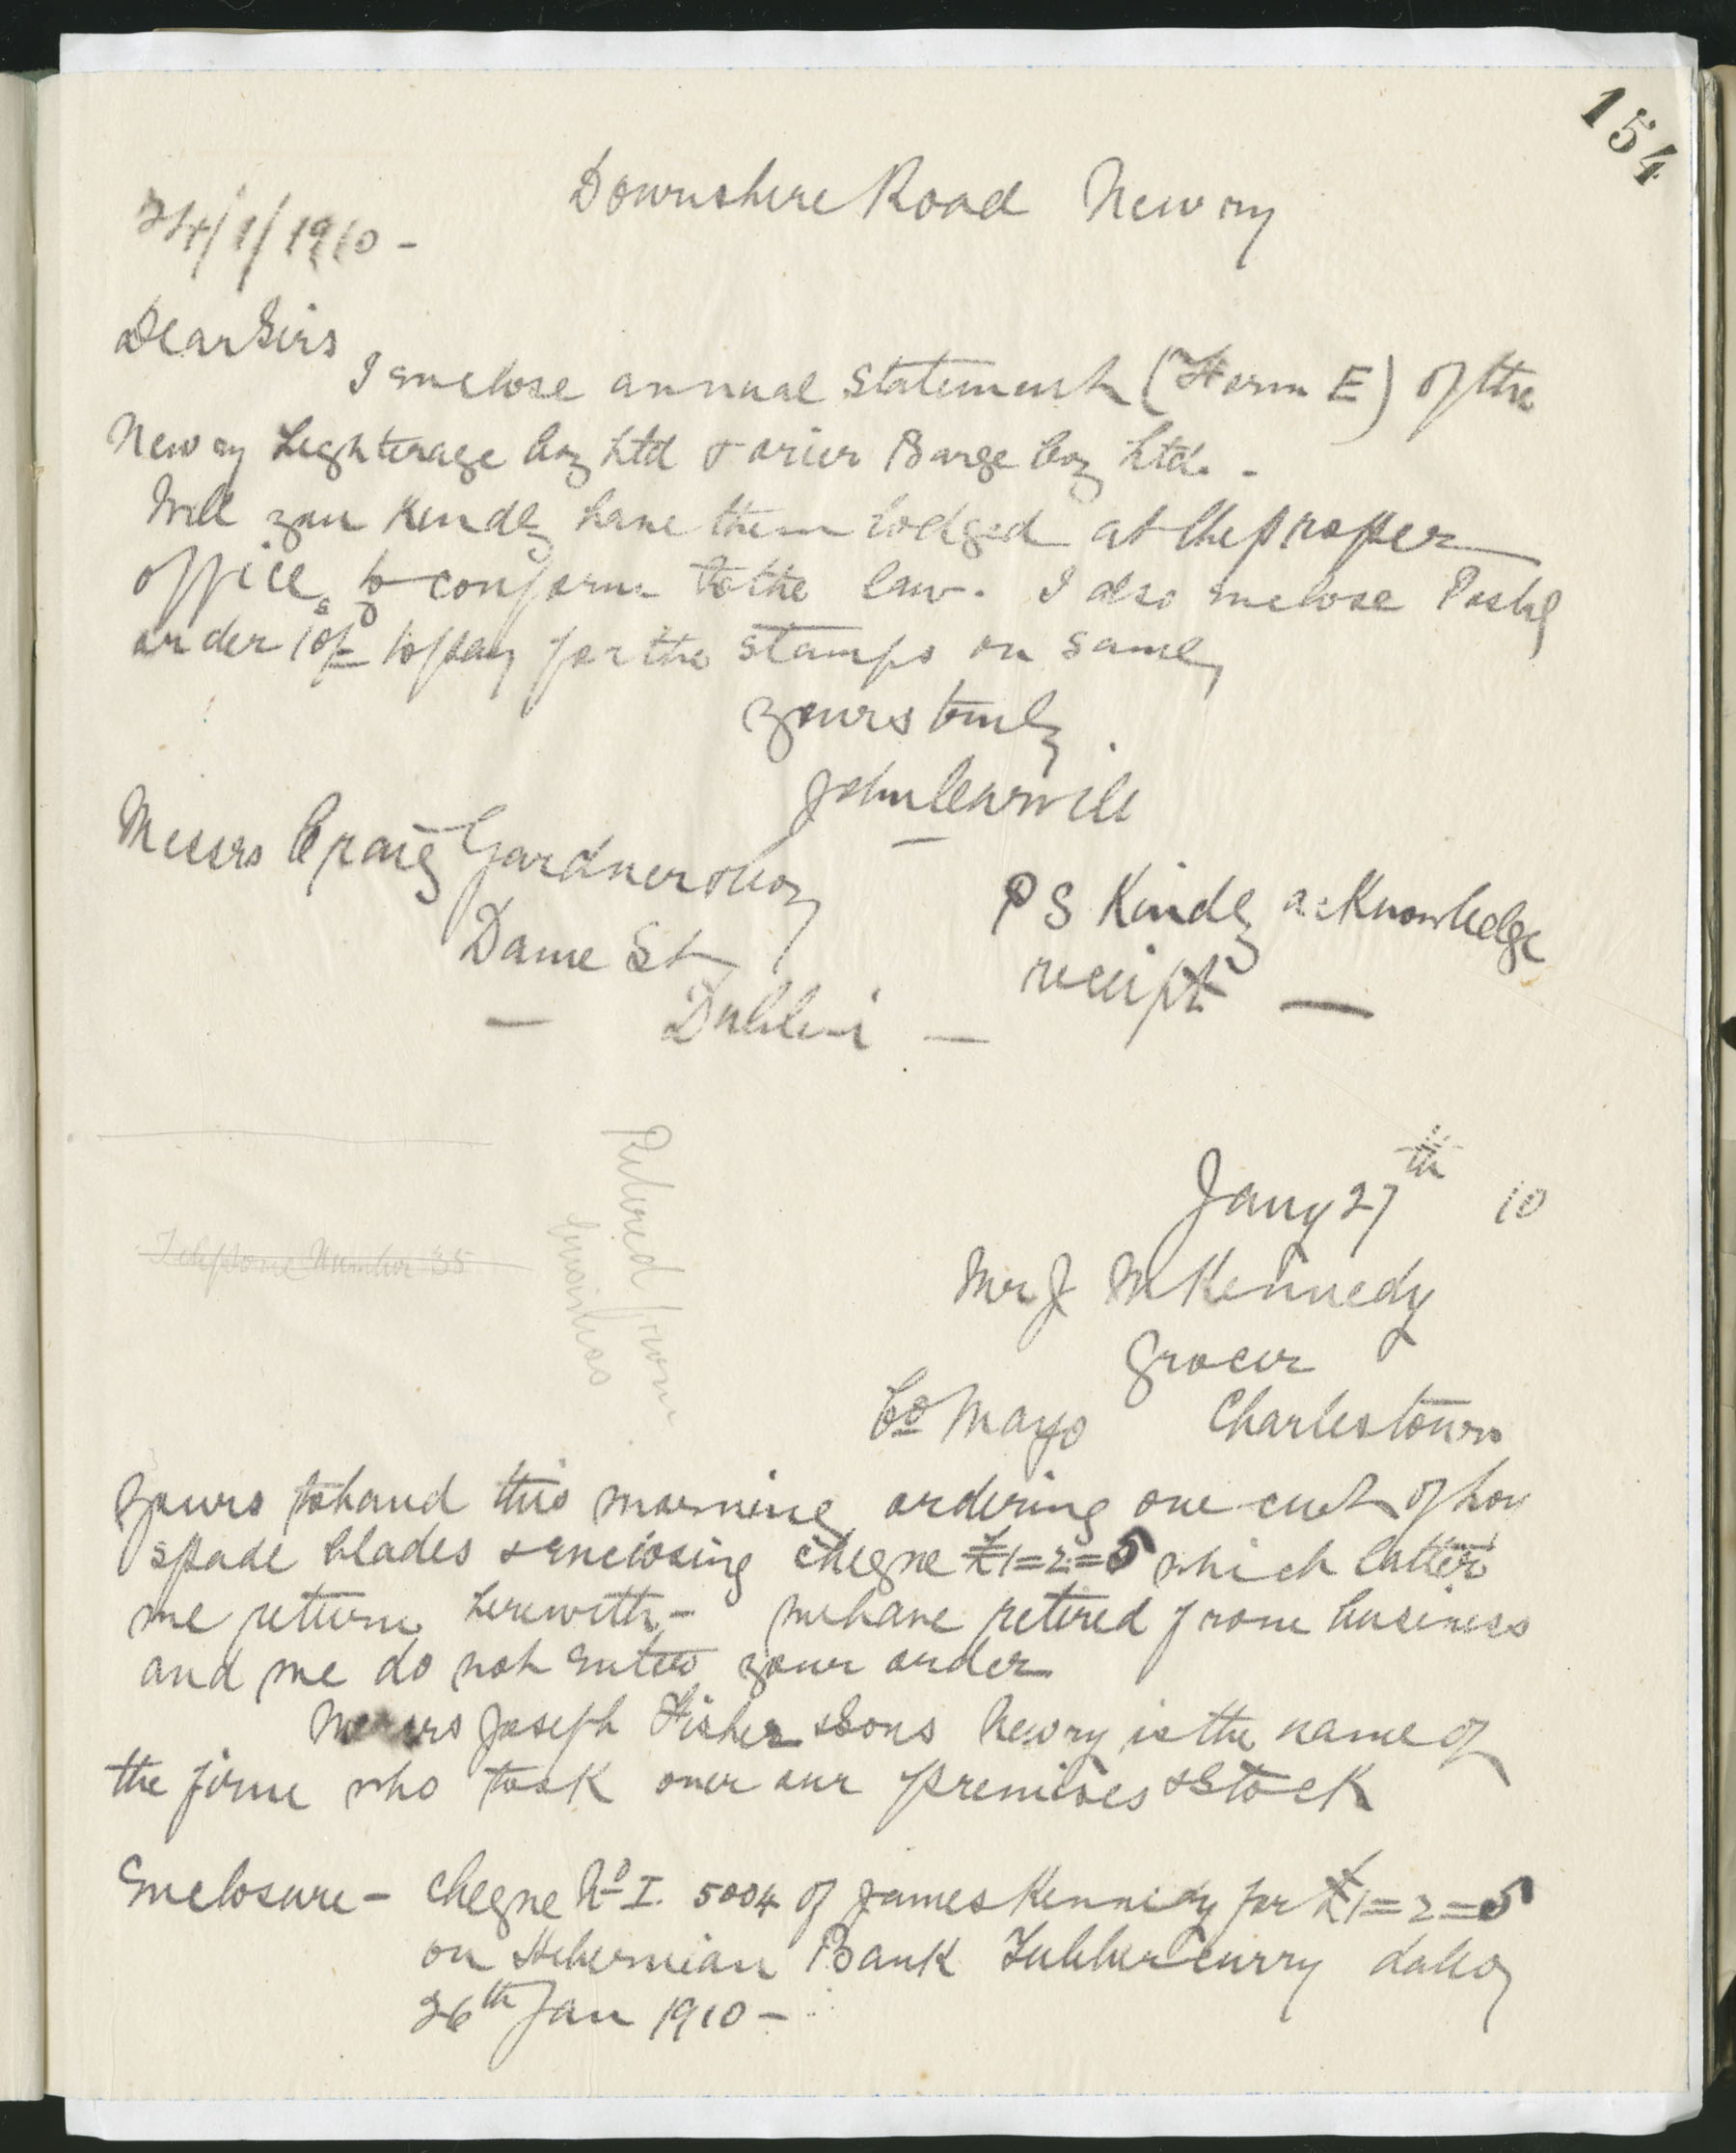 154
Downshire Road Newry
24/1/1910 -
Dear Sirs
I enclose annual Statement (Form E) of the
Newry Lighterage Coy Ltd & Barge Coy Ltd. -
Will you Kindly have them lodged at the proper
office, to conform to the law. I also enclose Postal
order 10/- to pay for the stamps on same,
yours truly
John
Messrs Craig Gardner & Coy
Dame St
- Dublin -
PS Kindly acKnowledge
receipt —
Jany 27th 10
Telephone Number 35
Retired from
business
Mr J M Kennedy
Grocer
Co Mayo Charlestown
yours to hand this morning ordering one cwt of
spade blades & enclosing cheque £1=2=5 which latter
we return herewith - we have retired from business
and we do not enter your order
Messrs Joseph Fisher & Sons Newry is the name of
the firm who took over our premises & Stock
Enclosure - cheque No I. 5004 of James Kennedy for £1=2=5
on Hibernian Bank Tubbercurry
26th Jan 1910 -